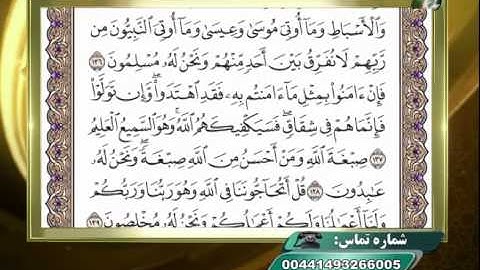 وَالْأَسْبَاطِ وَمَا أُوتِيَ مُوسَىٰ وَعِيسَىٰ وَمَا أُوتِيَ النَّبِيُّونَ مِن
رَّبِّهِمْ لَا نُفَرِّقُ بَيْنَ أَحَدٍ مِّنْهُمْ وَنَحْنُ لَهُ مُسْلِمُونَ ١٣٦
فَإِنْ ءَامَنُوا بِمِثْلِ مَا ءَامَنتُم بِهِ فَقَدِ اهْتَدَوا وَّإِن تَوَلَّوْا
فَإِنَّمَا هُمْ فِي شِقَاقٍ فَسَيَكْفِيكَهُمُ اللَّهُ وَهُوَ السَّمِيعُ الْعَلِيمُ
١٣٧ صِبْغَةَ اللَّهِ وَمَنْ أَحْسَنُ مِنَ اللَّهِ صِبْغَةً وَنَحْنُ لَهُ
عَابِدُونَ ١٣٨ قُلْ أَتُحَاجُّونَنَا فِي اللَّهِ وَهُوَ رَبُّنَا وَرَبُّكُمْ
وَلَنَا أَعْمَالُنَا وَلَكُمْ أَعْمَالُكُمْ وَنَحْنُ لَهُ مُخْلِصُونَ ١٣٩
شماره تماس:
00441493266005